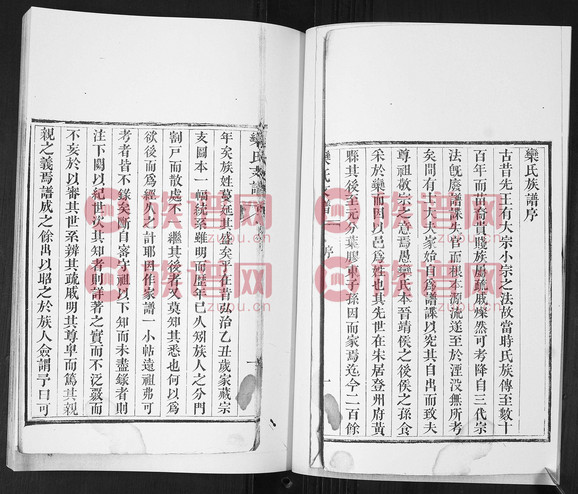 欒氏族譜序
古昔先王有大宗小宗之法故當時氏族傳至數十
百年而苗裔貴賤族屬疏戚燦然可考降自三代宗
法旣廢譜諜失官而根本源流遂至於湮沒無所考
矣間有士大夫家始自爲譜諜以究其自出而致夫
尊祖敬宗之意焉愚欒氏本晉靖侯之後侯之孫食
采於欒而因以邑爲姓也其先世在宋居登州府黃
縣其後至元分葉膠東子孫因而家焉迄今二百餘
欒氏族譜
序
一
年矣族姓蔓延其盛矣乎在昔
治乙丑歲家藏宗
支圖本一幅統系雖明而歷年已久矧族人之分門
割戸而散處不
繼其後者又莫知其悉也何以爲
欲後而爲經久之計耶因作家譜一小帖遠祖弗可
考者皆不錄矣斷自審守祖以下知而未盡錄者則
注下闕以紀世次其知者則詳著之實而不泛覈而
不妄於以審其世系辨其疏戚明其尊卑而篤其親
親之義焉譜成之餘出以昭之於族人僉謂予曰可
欒氏支譜
族譜网
族谱智网